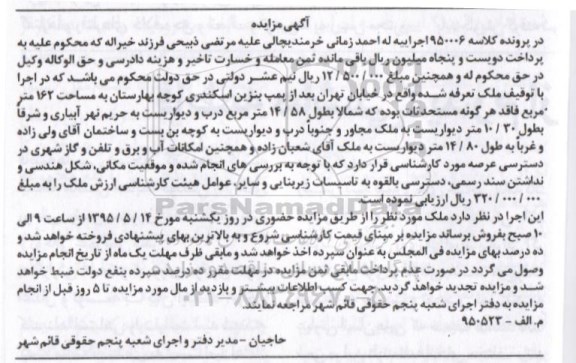 آگهی مزایده
در پرونده کلاسه ۹۵۰۰۰۶ اجرابیه له احمد زمانی خرمندیجالی علیه مرتضی ذبیحی فرزند خیراله که محکوم علیه به
پرداخت دویست و پنجاه میلیون ریال باقی مانده ثمن معامله و خسارت تاخیر و هزینه دادرسی و حق الوکاله وکیل
در حق محکوم له و همچنین مبلغ ۱۲/۵۰۰/۰۰۰ ریال نیم عشر دولتی در حق دولت محکوم می باشد که در اجرا
با توقیف ملک تعرفه شده واقع در خیابان تهران بعد از پمپ بنزین اسکندری کوچه بهارستان به مساحت ۱۶۲ متر
مربع فاقد هر گونه مستحدثات بوده که شمالا بطول ۱۴/۵۸ متر مربع درب و دیواریست به حریم نهر آبیاری و شرقاً
بطول ۱۰/۳۰ متر دیواریست به ملک مجاور و جنوباً درب و دیواریست به کوچه بن بست و ساختمان آقای ولی زاده
و غرباً به طول ۱۴/۸۰ متر دیواریست به ملک آقای شعبان زاده و همچنین امکانات آب و برق و تلفن و گاز شهری در
دسترسی عرصه مورد کارشناسی قرار دارد که با توجه به بررسی های انجام شده و موقعیت مکانی، شکل هندسی و
نداشتن سند رسمی، دسترسی بالقوه به تاسیسات زیربنایی و سایر عوامل هیئت کارشناسی ارزش ملک را به مبلغ
۳۲۰/۰۰۰/۰۰۰ ریال ارزیابی نموده است.
این اجرا در نظر دارد ملک مورد نظر را از طریق مزایده حضوری در روز یکشنبه مورخ ۱۳۹۵/۵/۱۴ از ساعت ۹ الی
۱۰ صبح بفروش برساند مزایده بر مبنای قیمت کارشناسی شروع و به بالاترین بهای پیشنهادی فروخته خواهد شد و
ده درصد بهای مزایده فی المجلس به عنوان سپرده اخذ خواهد شد و مابقی ظرف مهلت یک ماه از تاریخ انجام مزایده
وصول می گردد در صورت عدم پرداخت مابقی ثمن مزایده در مهلت مقرر ده درصد سپرده بنفع دولت ضبط خواهد
شد و مزایده تجدید خواهد گردید. جهت کسب اطلاعات بیشتر و بازدید از مال مورد مزایده تا ۵ روز قبل از انجام
مزایده به دفتر اجرای شعبه پنجم حقوقی قائم شهر مراجعه نمایند.
م الف - ۹۵۰۵۲۳
حاجیان - مدیر دفتر و اجرای شعبه پنجم حقوقی قائم شهر